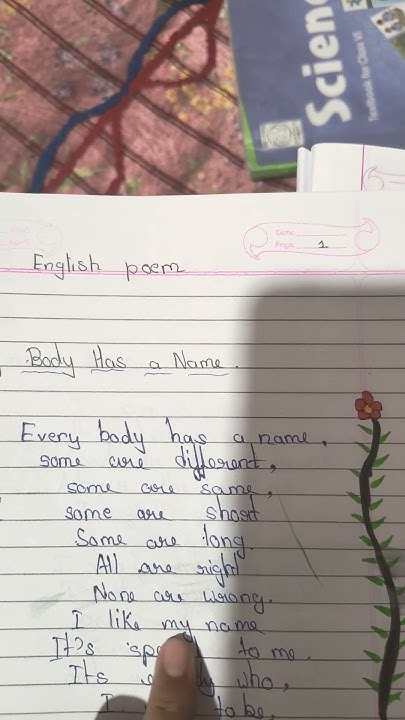 Science
Textbook for Class VI
Date
Page 1
English poem
Body Has a Name.
Every body has a name,
some are different,
some are same,
some are short
Some are long.
All are right
None are wrong.
I like my name
It's to me.
Its who,
I to be,